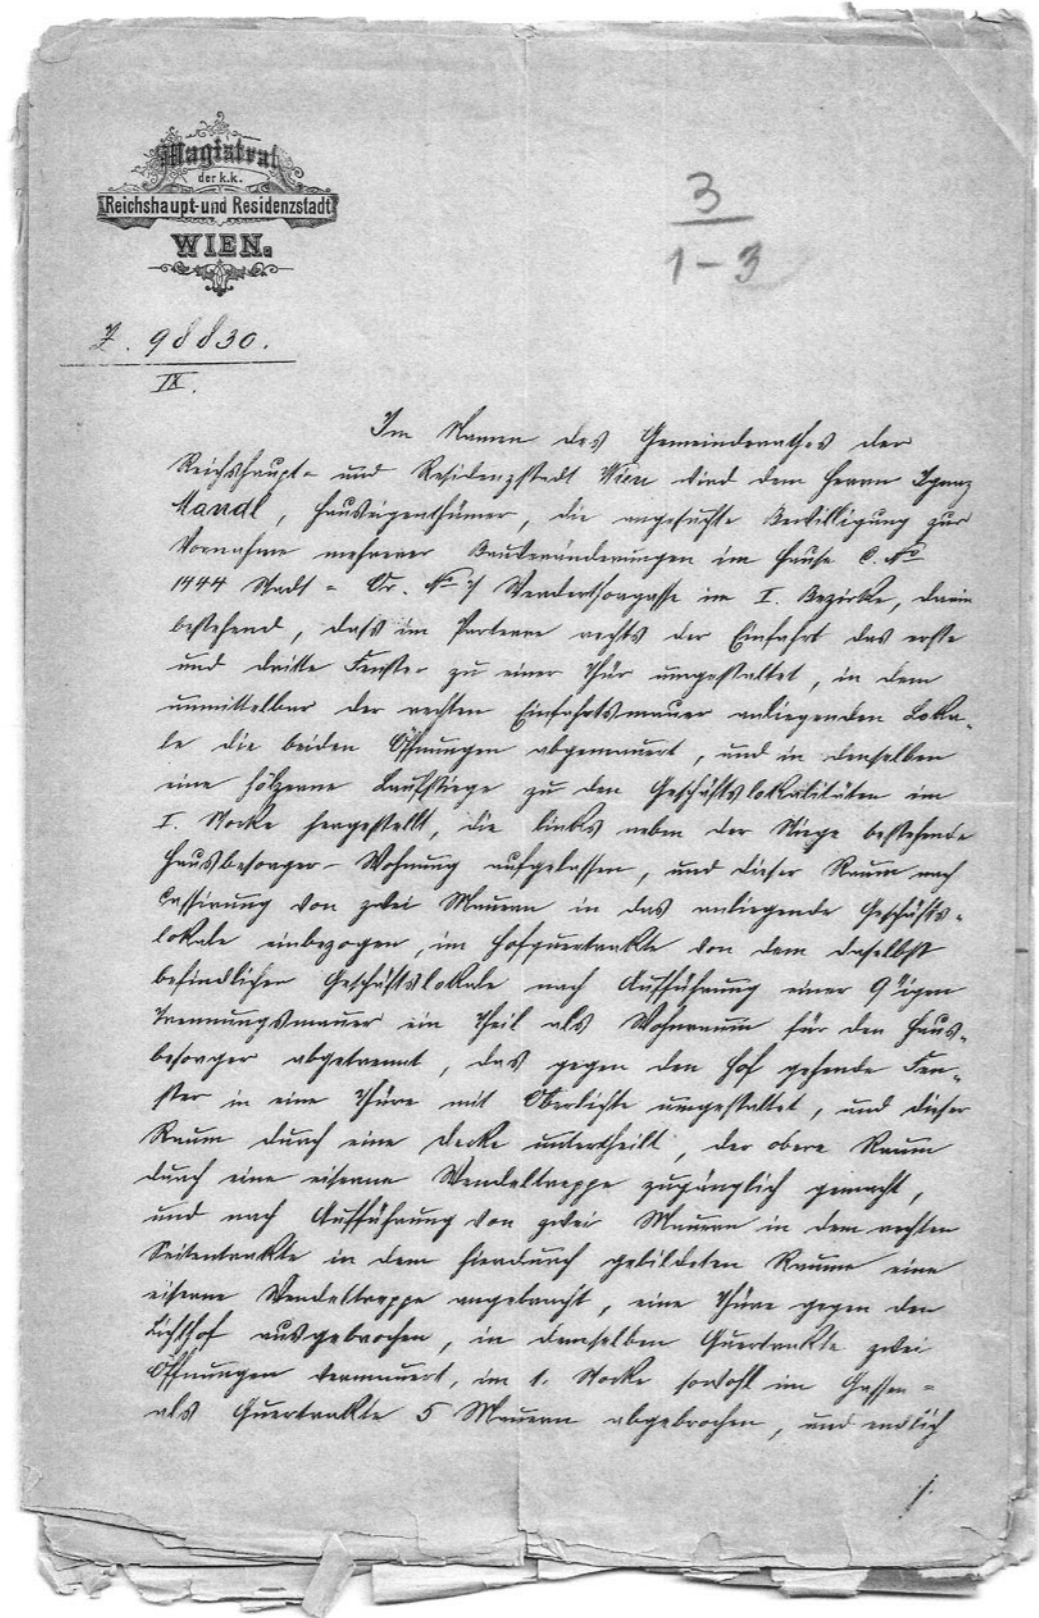 Magistrat
der k.k.
Reichshaupt- und Residenzstadt
WIEN.
3
1-3
Z. 98830.
IX.
Im Namen des Gemeinderathes der
Reichshaupt- und Residenzstadt Wien wird dem Herrn Ignaz
Mandl, Hauseigenthümer, die angesuchte Bewilligung zur
Vornahme mehrerer Bauveränderungen im Hause C. No
1444 Stadt - Or. No Werderthorgasse im I. Bezirke, darin
bestehend, daß im Parterre rechts der Einfahrt das erste
und dritte Fenster zu einer Thür umgestaltet, in dem
unmittelbar der rechten Einfahrtsmauer anliegenden Loka-
le die beiden Öffnungen abgemauert, und in denselben
eine hölzerne Laufstiege zu den Geschäftslokalitäten im
I. Stocke hergestellt, die links neben der Stiege bestehende
Hausbesorger-Wohnung aufgelassen, und dieser Raum nach
Cassirung von zwei Mauern in das anliegende Geschäfts-
lokale einbezogen, im Hofquertrakte von dem daselbst
befindlichen Geschäftslokale nach Aufführung einer 9"igen
Trennungsmauer ein Theil als Wohnraum für den Haus-
besorger abgetrennt, das gegen den Hof gehende Fen-
ster in eine Thüre mit Oberlichte umgestaltet, und dieser
Raum durch eine Decke untertheilt, der obere Raum
durch eine eiserne Wendeltreppe zugänglich gemacht,
und nach Aufführung von zwei Mauern in dem rechten
Seitentrakte in dem hierdurch gebildeten Raume eine
eiserne Wendeltreppe angebracht, eine Thüre gegen den
Lichthof ausgebrochen, in demselben Quertrakte zwei
Öffnungen vermauert, im 1. Stocke sowohl im Gassen-
als Quertrakte 5 Mauern abgebrochen, und endlich
./.